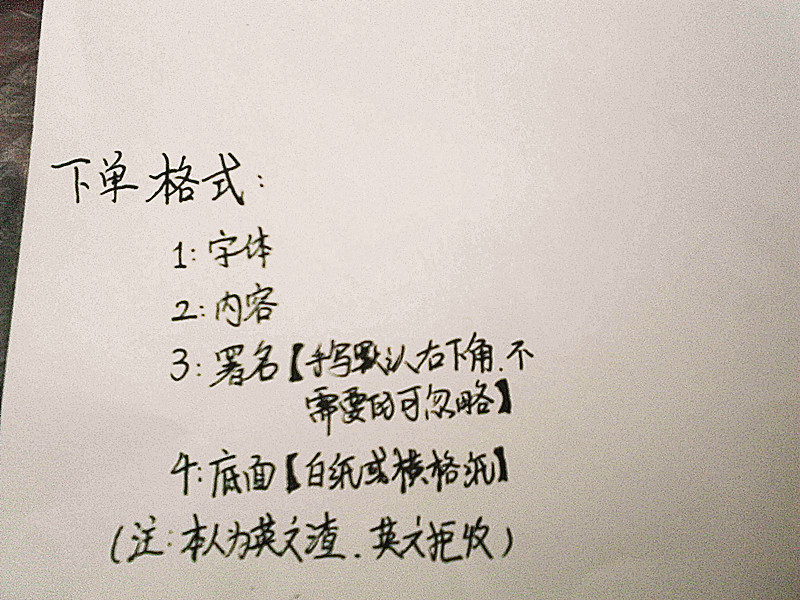 下单格式:
1:字体
2:内容
3:署名【手写默认右下角.不
需要的可忽略】
4:底面【白纸或横格纸】
(注:本人为英文渣.英文拒收)